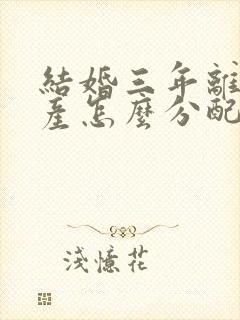 結婚三年離
產怎麼分配
淺憶花